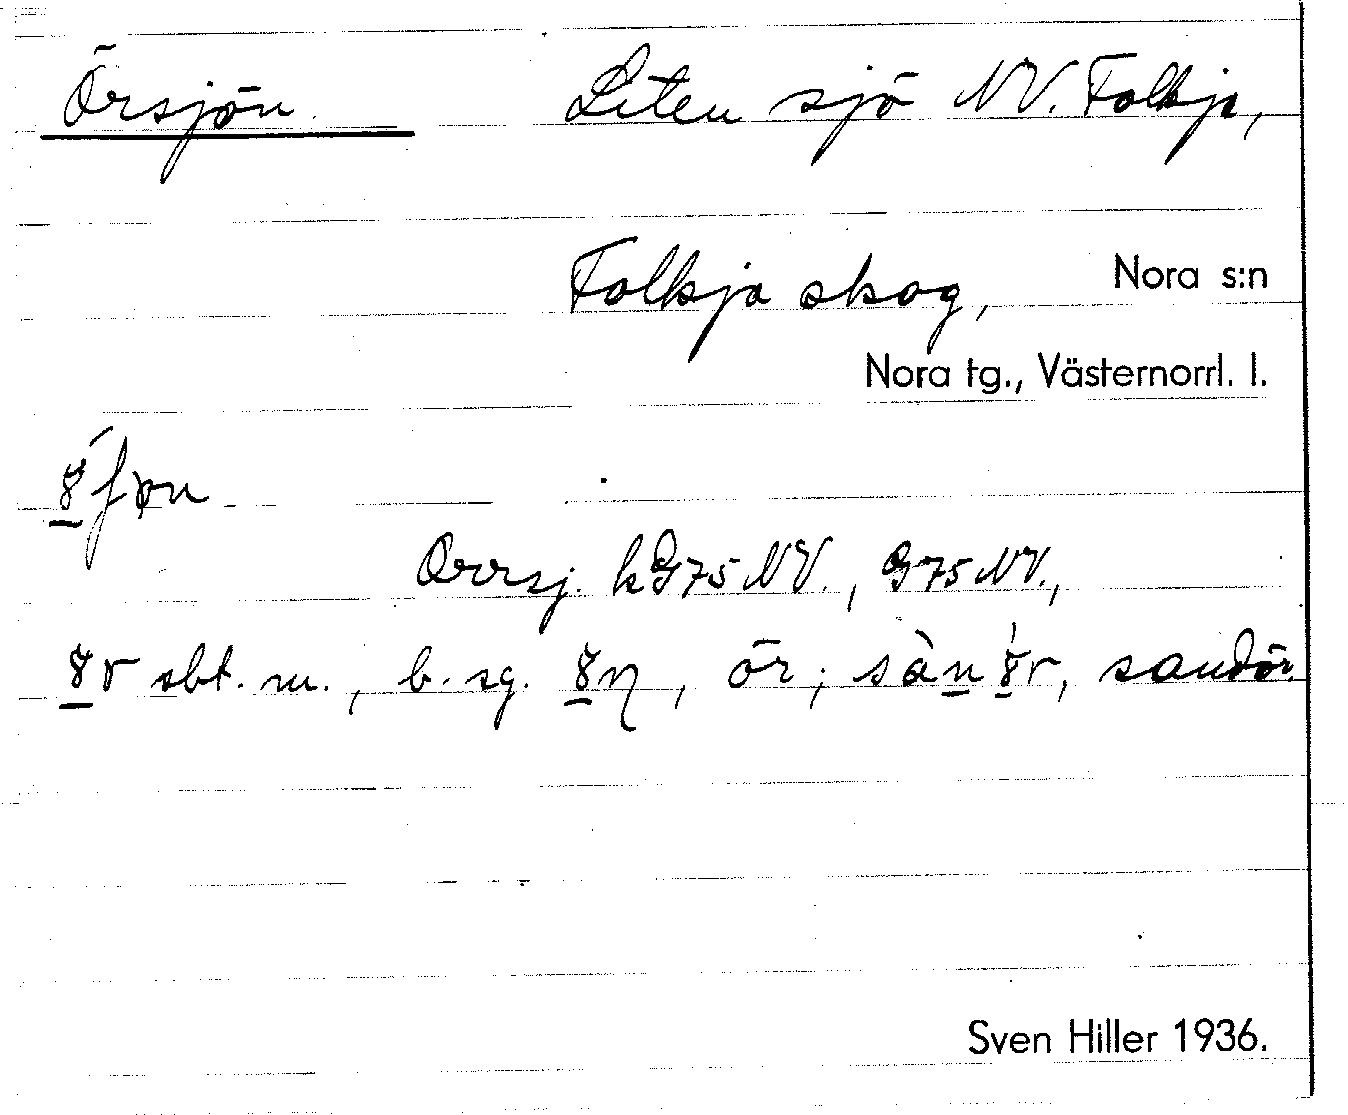 Örsjön. Liten sjö NV. Folkja,
Folkja skog, Nora s:n
Nora tg., Västernorrl. l.
Orrsj. kG75NV., G75NV.,
sbt. m., b. sg. , ör; , sandör.
Sven Hiller 1936.